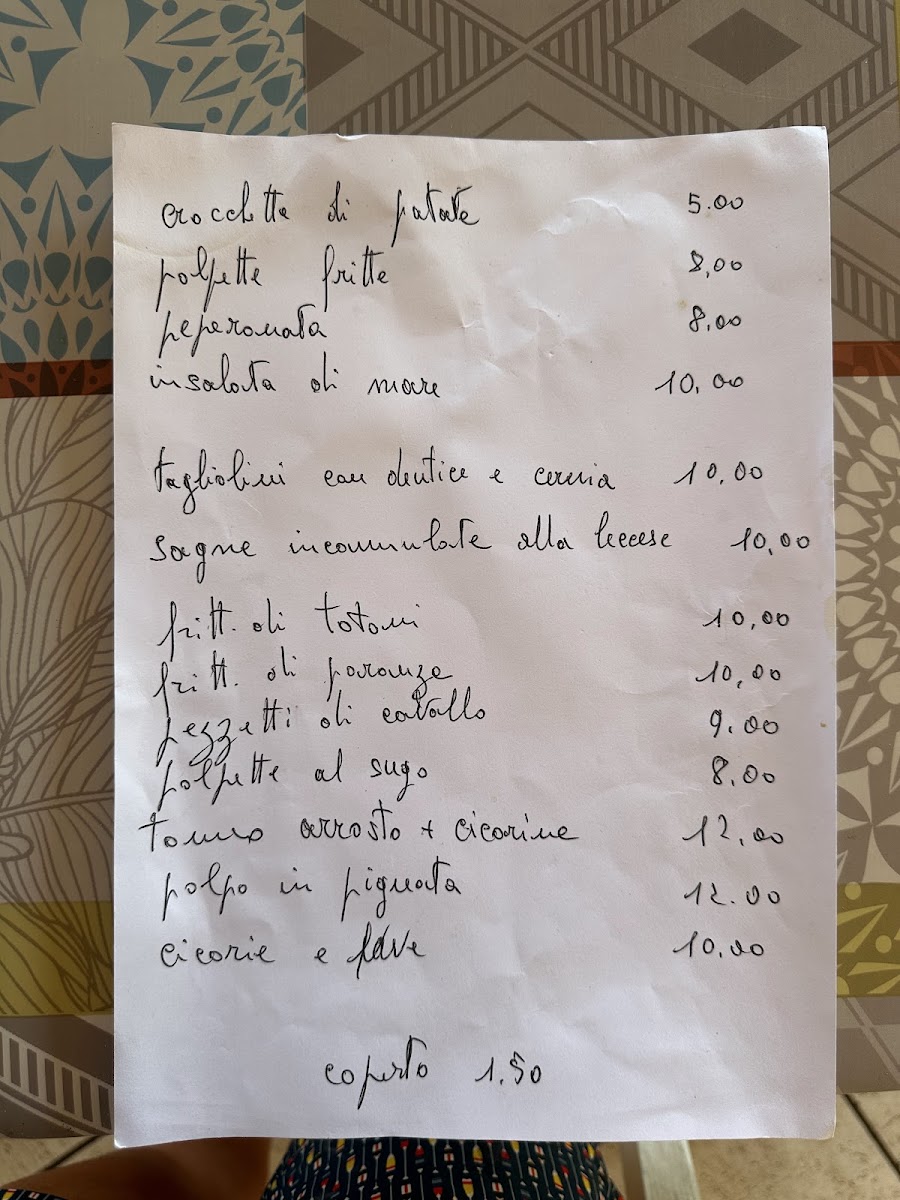 crocchette di patate 5.00
polpette fritte 8,00
peperonata 8,00
insalata di mare 10,00
tagliolini con dentice e cernia 10,00
sagne incannulate alla leccese 10,00
fritt. di totani 10,00
fritt. di paranza 10,00
pezzetti di cavallo 9.00
polpette al sugo 8.00
tonno arrosto + cicorine 12,00
polpo in pignata 12.00
cicorie e fave 10,00
coperto 1.50